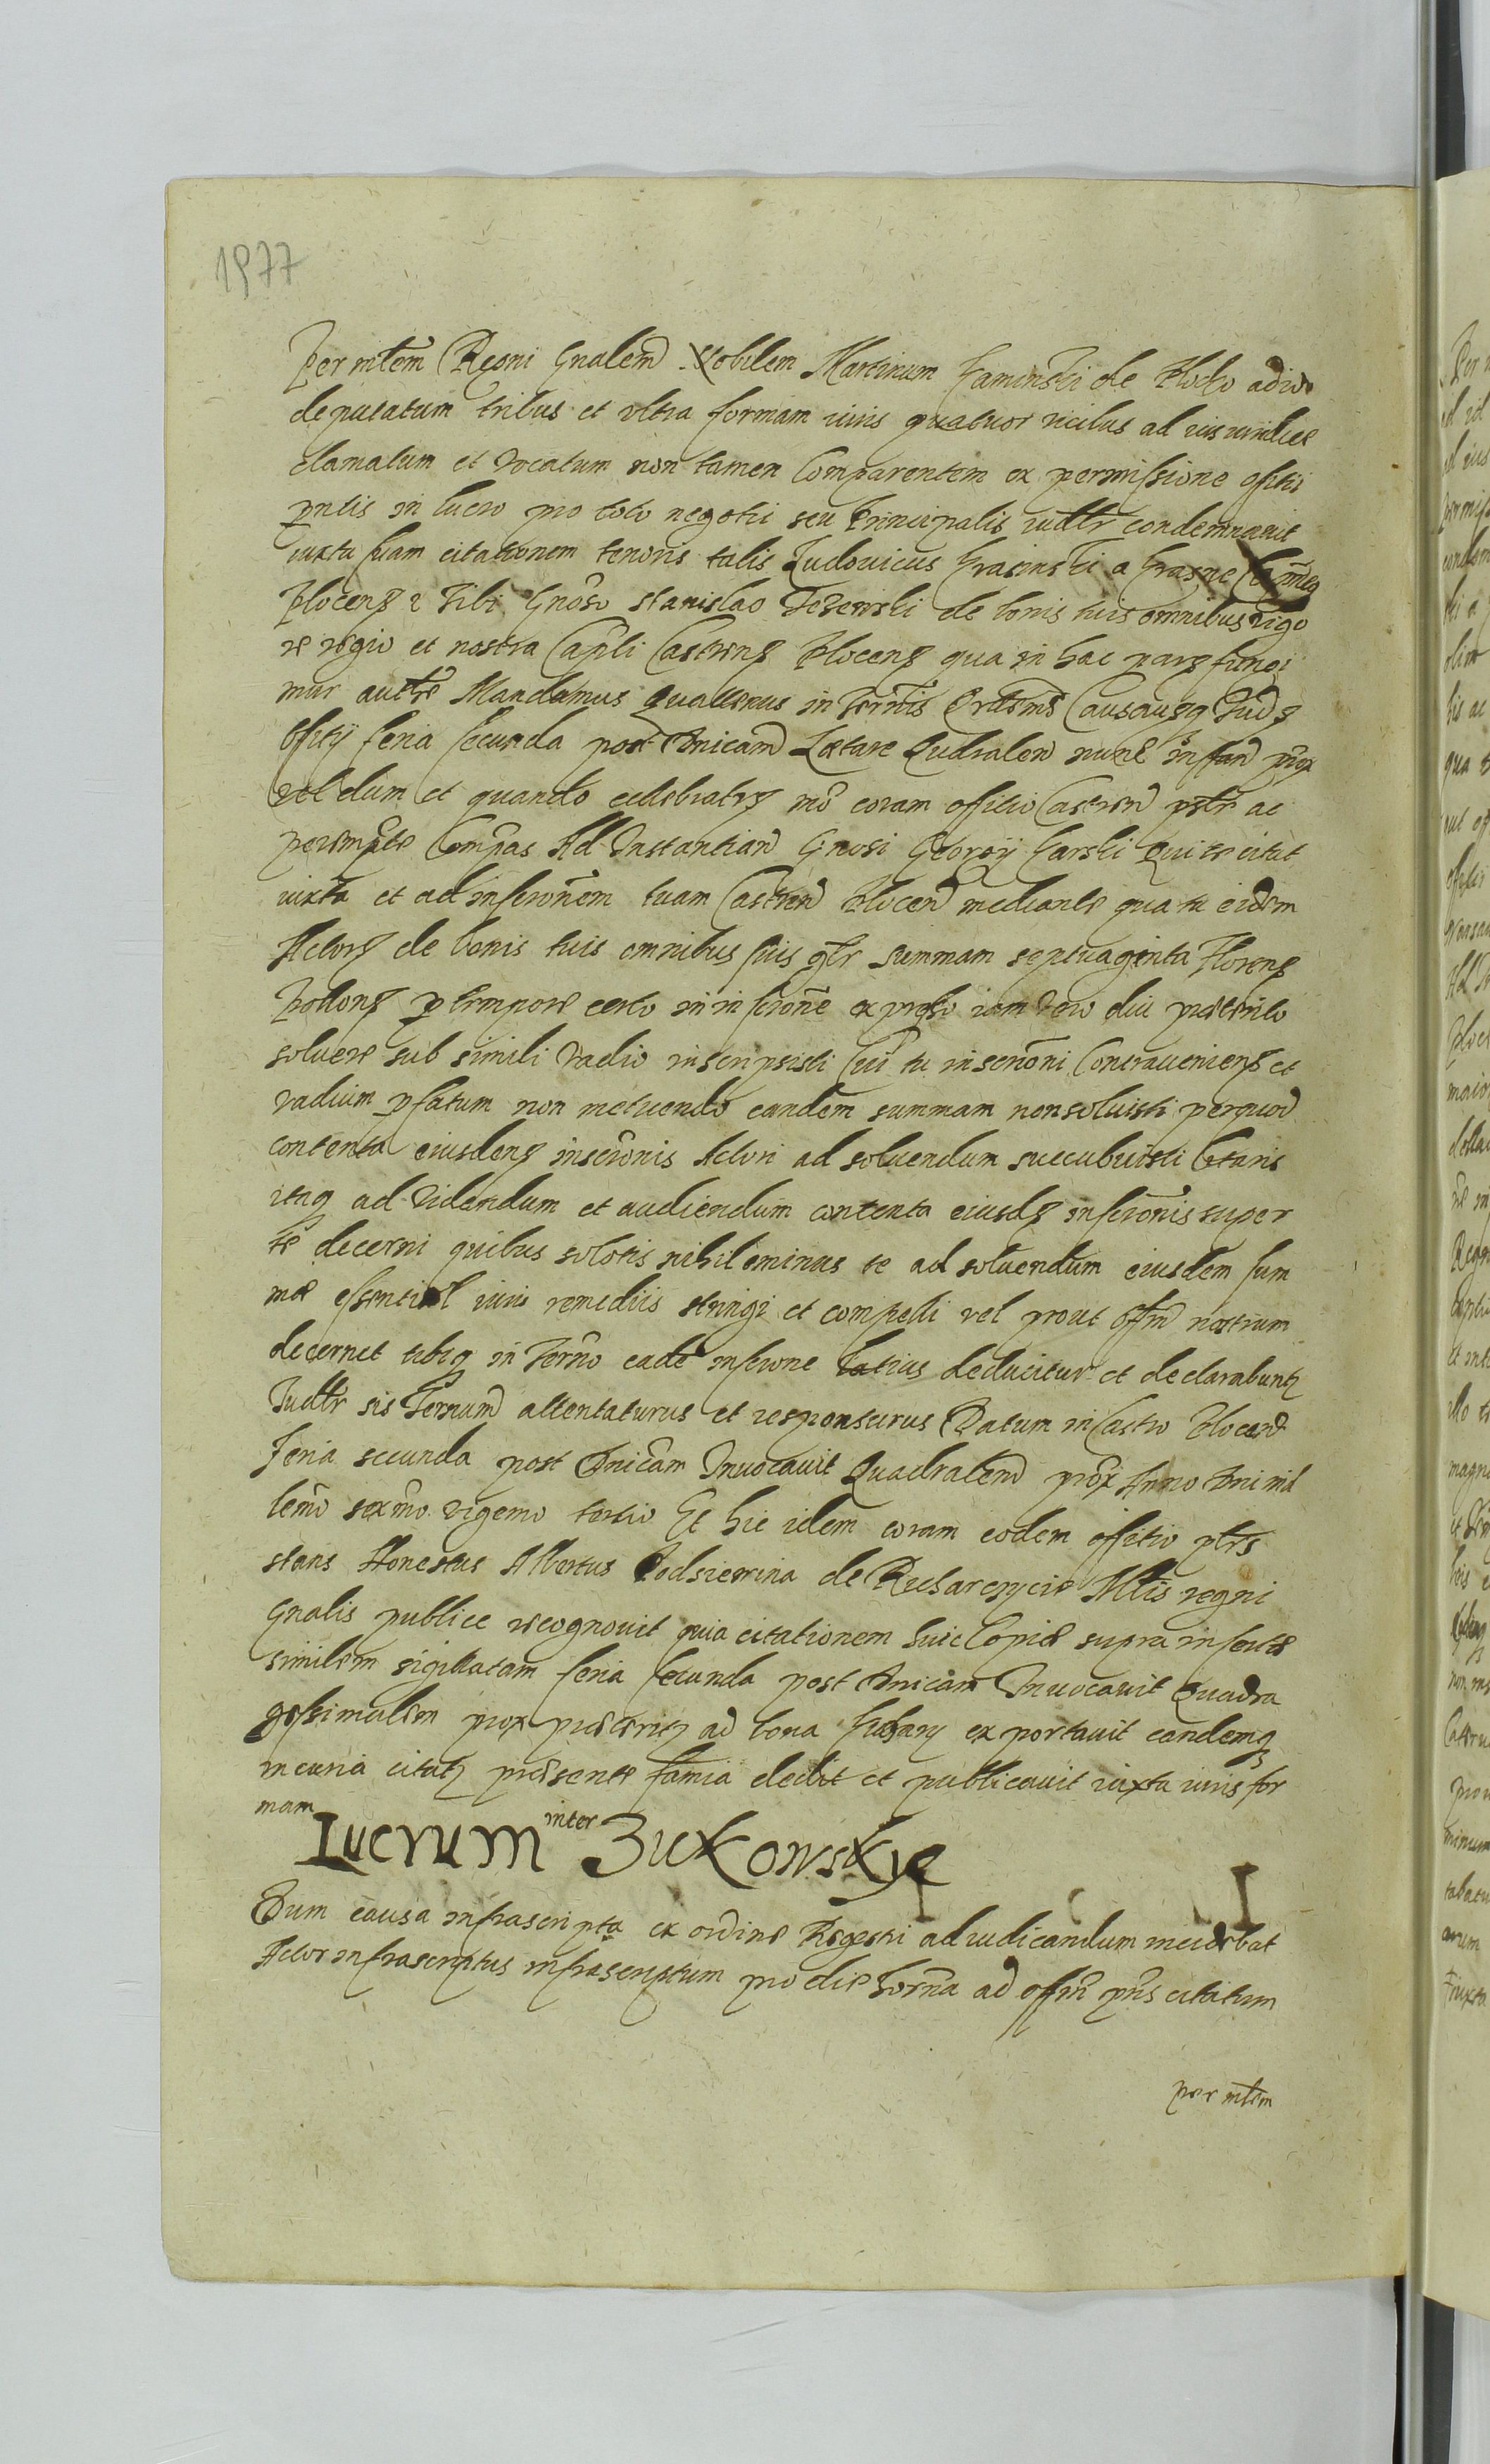 1977
Per mtem Regni Gnalem Nobilem Martinum Kaminski de Plocko ad id
deputatum tribus et vltra formam iuris quatuor vicibus ad ius iudicial
clamatum et vocatum non tamen Comparentem ex permissione offitii
pntis in lucro pro toto negotii seu Principalis iudlr condemnauit
iuxta suam citationem tenoris talis Ludouicus Krasinski a Krasne
Plocens Tibi Gnoso Stanislao de bonis tuis omnibus rigo
re regio et nostra Capli Castrens Plocens qua in hac parte fungi
mur autte Mandamus Quatenus in Termis
Offitij feria secunda post Dnicam Laetare Qudralem nunc instan prox
vel dum et quando celebrabtr mo coram officio Castren pstr ac
perempte Compas Ad Instantiam Gnosi Georgij Karski Qui te citat
iuxta et ad inscronem tuam Castren Plocen mediante qua tu eidem
Actori de bonis tuis omnibus suis gnlr summam septuaginta Floreng
Polong p tempore certo in inscrone expresso iam vero diu praeterito
soluere sub simili vadio inscripsisti Cui tu inscrioni Contraueniens et
vadium psatum non metuendo eandem summam non soluisti perquod
contenta eiusdem inscronis Actori ad soluendum succubuisti Citaris
itaq ad videndum et audiendum contenta eiusdg inscronis super
te decerni quibus solutis nihilominus te ad soluendum eiusdem sum
mae essential iuris remediis stringi et compelli vel prout offm nostrum
decernet tibiq in Termo eade inscrone latius deducitur et declarabuntr
Iudlr sis Termum attentaturus et responsurus Datum in Castro Plocen
Feria secunda post Dnicam Inuocauit Quadralem prox Anno Dni mil
lemo sexmo vigemo tertio Et hic idem coram eodem offitio ptrs
stans Honestus Albertus Podsiemina de Rucharczycie Mlis regni
Gnalis publice recognouit quia citationem huic Copiae supra insertae
similem sigillatam feria secunda post Dnicam Inuocauit Quadra
gessimalem prox praeteritr ad bona exportauit eandemq
in curia citatr praesente famia dedit et publicauit iuxta iuris for
mam
Lucrum inter Zukowskye
Dum causa infrascripta ex ordine Regestri ad iudicandum inciderbat
Actor infrascriptus infrascriptum pro die Terma ad offm pns citatum
per mtem